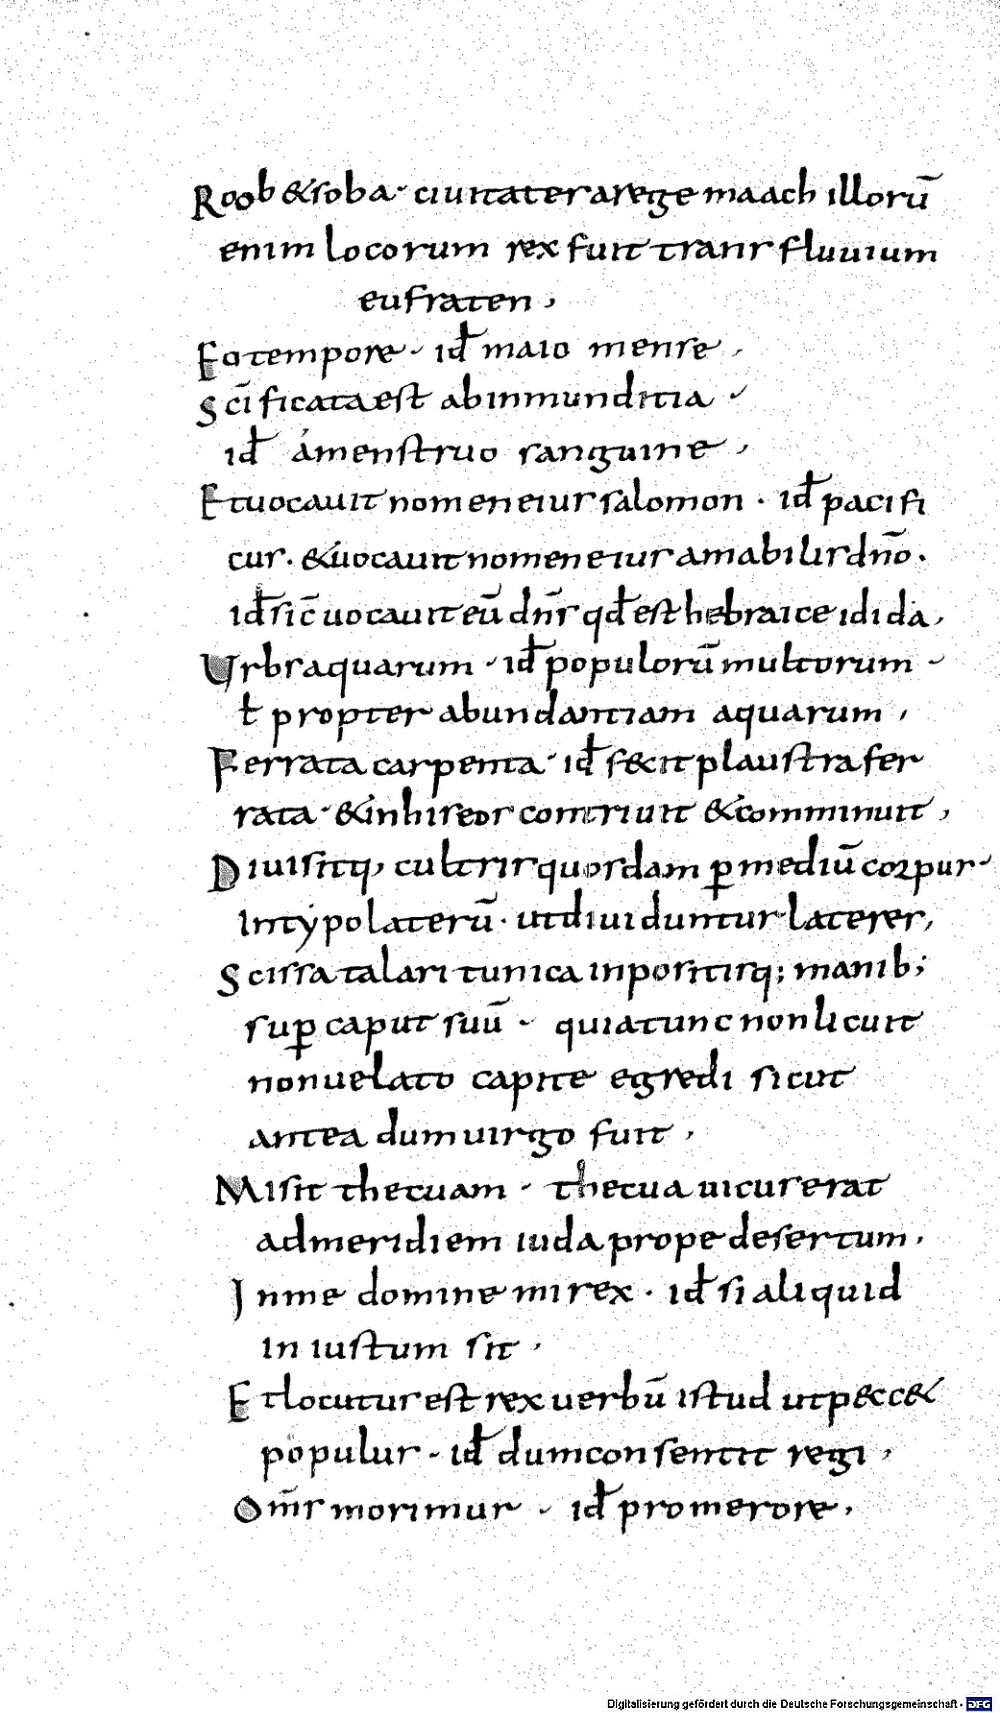 Roob &soba· ciuitates arege maach illorū
enim locorum rex fuit trans fluuium
eufraten,
Eo tempore· id̄ maio mense,
Sc̄ificata est ab inmunditia·
id̄ ámenstruo sanguine,
Et uocauit nomen eius salomon· id̄ pacifi
cus· &uocauit nomen eius amabilis dn̄o·
id̄ sic̄ uocauit eū dn̄s qd̄ est hebraice idida,
Urbs aquarum· id̄ populorū multorum·
ł propter abundantiam aquarum,
Ferrata carpenta· id̄ fecit plaustra fer
rata· &in his eos contriuit &comminuit,
Diuisitq, cultris quosdam ꝑ mediū corpus·
In typo laterū· ut diuiduntur lateres,
Scissa talari tunica inpositisq; manib;
suꝑ caput suū· quia tunc non licuit
non uelato capite egredi sicut
antea dum uirgo fuit,
Misit thecuam· thecua uicus erat
ad meridiem iuda prope desertum,
In me domine mi rex· id̄ si aliquid
in iustum sit,
Et locutus est rex uerbū istud ut pecc&
populus· id̄ dum consentit regi,
Om̄s morimur· id̄ pro merore,
Digitalisierung gefördert durch die Deutsche Forschungsgemeinschaft - DFG